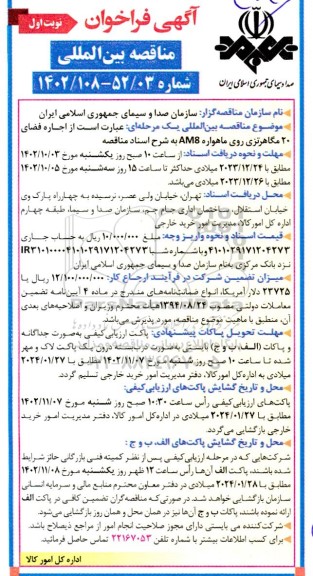 آگهی فراخوان
نوبت اول
مناقصه بین‌المللی
شماره ۵۲/۰۳-۱۴۰۲/۱۰۸
صدا و سیمای جمهوری اسلامی ایران
نام سازمان مناقصه‌گزار: سازمان صدا و سیمای جمهوری اسلامی ایران
موضوع مناقصه بین‌المللی یک مرحله‌ای: عبارت است از اجاره فضای
۲۰ مگاهرتزی روی ماهواره AM8 به شرح اسناد مناقصه
مهلت و نحوه دریافت اسناد: از ساعت ۱۰ صبح روز یکشنبه مورخ ۱۴۰۲/۱۰/۰۳
مطابق ۲۰۲۳/۱۲/۲۴ میلادی حداکثر تا ساعت ۱۵ روز سه‌شنبه مورخ ۱۴۰۲/۱۰/۰۵
مطابق با ۲۰۲۳/۱۲/۲۶ میلادی می‌باشد.
محل دریافت اسناد: تهران، خیابان ولی عصر، نرسیده به چهارراه پارک وی
خیابان استقلال، ساختمان اداری جام جم، سازمان صدا و سیما، طبقه چهارم
اداره کل امور کالا، مدیریت امور خرید خارجی
قیمت اسناد و نحوه واریز وجه: مبلغ ۱۰/۰۰۰/۰۰۰ ریال به حساب جاری
نزد بانک مرکزی به‌نام سازمان صدا و سیمای جمهوری اسلامی ایران
میزان تضمین شرکت در فرآیند ارجاع کار: ۱۲/۰۰۰/۰۰۰/۰۰۰ ریال یا
۲۳۷۲۵ دلار آمریکا، انواع ضمانت‌نامه‌های مندرج در ماده ۴ آیین‌نامه تضمین
معاملات دولتی مصوب ۱۳۹۴/۰۸/۲۴ هیأت محترم وزیران و اصلاحیه‌های بعدی
آن، منطبق با ماهیت موضوع مناقصه، مورد پذیرش می‌باشد.
مهلت تحویل پاکات پیشنهادی: پاکت ارزیابی کیفی به‌صورت جداگانه
و پاکات (الف، ب و ج) بایستی به‌صورت دربسته درون یک پاکت لاک و مهر
شده تا ساعت ۱۰ صبح روز شنبه مورخ ۱۴۰۲/۱۱/۰۷ مطابق با ۲۰۲۴/۰۱/۲۷
میلادی به اداره کل امور کالا، دفتر مدیریت امور خرید خارجی تسلیم گردد.
محل و تاریخ گشایش پاکت‌های ارزیابی کیفی:
پاکت‌های ارزیابی کیفی رأس ساعت ۱۰:۳۰ صبح روز شنبه مورخ ۱۴۰۲/۱۱/۰۷
مطابق با ۲۰۲۴/۰۱/۲۷ میلادی در اداره کل امور کالا، دفتر مدیریت امور خرید
خارجی بازگشایی می‌گردد.
محل و تاریخ گشایش پاکت‌های الف، ب و ج:
شرکت‌هایی که در مرحله ارزیابی کیفی پس از نظر کمیته فنی بازرگانی حائز شرایط
شده باشند، پاکت الف آن‌ها رأس ساعت ۱۲ ظهر روز یکشنبه مورخ ۱۴۰۲/۱۱/۰۸
مطابق با ۲۰۲۴/۰۱/۲۸ میلادی در دفتر معاون محترم منابع مالی و سرمایه انسانی
سازمان بازگشایی خواهد شد. در صورتی‌که مناقصه‌گران تضمین کافی در پاکت الف
ارائه نموده باشند، پاکات ب و ج آن‌ها نیز در همان محل و همان روز بازگشایی می‌شود.
شرکت‌کننده می بایستی دارای مجوز صلاحیت انجام امور از مراجع ذیصلاح باشد.
برای کسب اطلاعات بیشتر با شماره تلفن ۲۲۱۶۷۰۵۳ تماس حاصل فرمائید.
اداره کل امور کالا